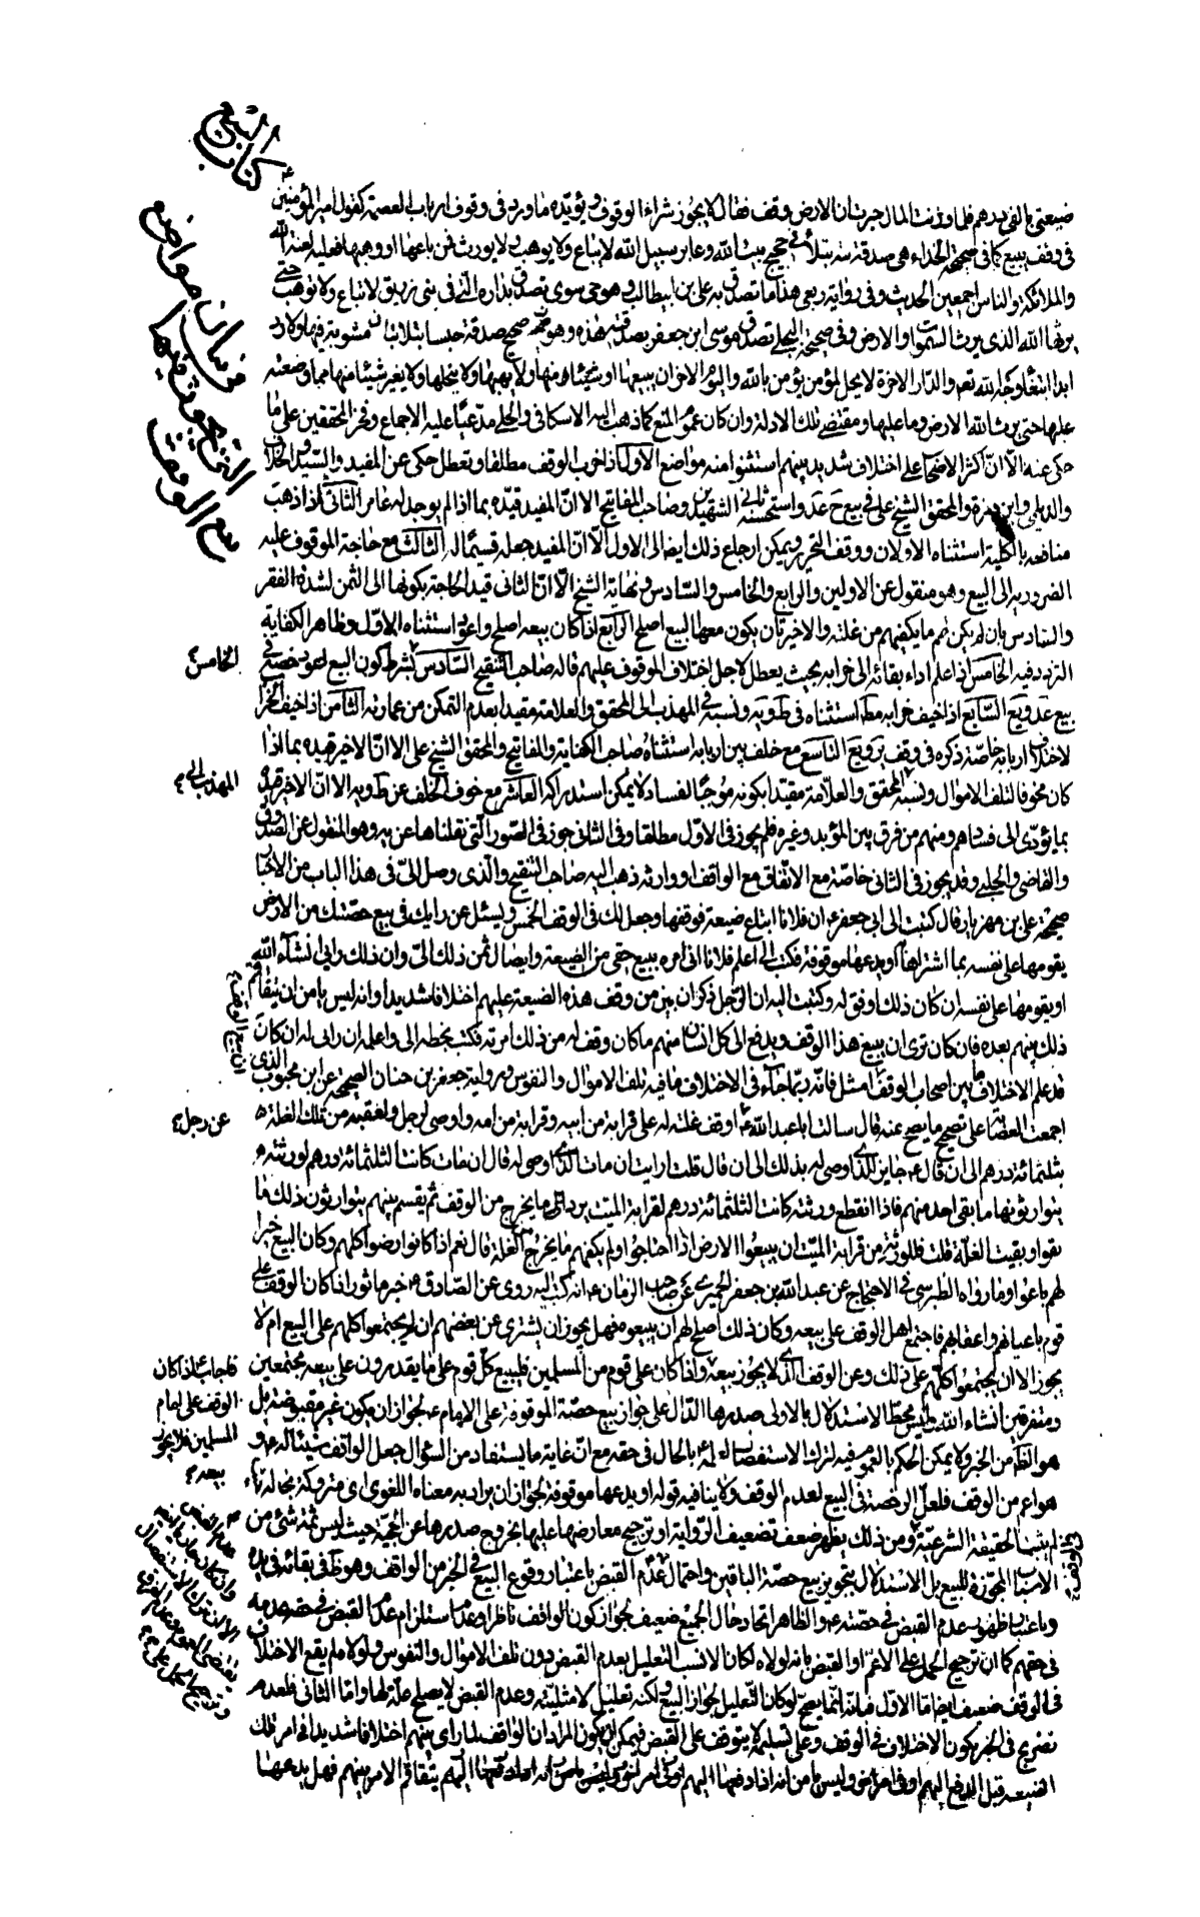 كتاب البيع
في بيان مواضع
التي يجوز فيها
بيع الوقف
ضيعتي بالفي درهم فلما وزنت المال خبرت ان الارض وقف فقال لا يجوز شراء الوقوف ويؤيده ما ورد في وقوف ارباب العصمة كقول امير المؤمنين ع
في وقف ينبع كما في صحيحة الحذاء هي صدقة بتة بتلا في حجيج بيت الله وعابر سبيل الله لا يباع ولا يوهب ولا يورث فمن باعها او وهبها فعليه لعنة الله
والملائكة والناس اجمعين الحديث وفي رواية ربعي هذا ما تصدق به علي بن ابيطالب وهو حي سوي تصدق بداره التي في بني زريق لا تباع ولا توهب حتى
يرثها الله الذي يرث السموات والارض وفي صحيحة البجلي تصدق موسى ابن جعفر بصدقته هذه وهو حي صحيح صدقة حبسا بتلا بتا لا مشوبة فيها ولا رد
ابدا ابتغاء وجه الله تعالى والدار الاخرة لا يحل لمؤمن يؤمن بالله واليوم الاخر ان يبيعها او شيئا منها ولا يهبها ولا ينحلها ولا يغير شيئا منها مما وضعته
عليها حتى يرث الله الارض وما عليها ومقتضى تلك الادلة وان كان عموم المنع كما ذهب اليه الاسكافي والحلي مدعيا عليه الاجماع وفخر المحققين على ما
حكي عنه الا ان اكثر الاصحاب على اختلاف شديد بينهم استثنوا منه مواضع الاول اذا خرب الوقف مطلقا وتعطل حكي عن المفيد والسيد والخلاف
والديلمي وابن حمزة والمحقق الشيخ علي في بيع واستحسنه ثاني الشهيدين وصاحب المفاتيح الا ان المفيد قيده بما اذا لم يوجد له عامر الثاني اذا ذهب
منافعه بالكلية استثناه الاولان ووقف التحرير ويمكن ارجاع ذلك ايضا الى الاول الا ان المفيد جعله قسيما له الثالث مع حاجة الموقوف عليه
الضرورية الى البيع وهو منقول عن الاولين والرابع والخامس والسادس ونهاية الشيخ الا ان الثاني قيد الحاجة بكونها الى الثمن لشدة الفقر
والسادس بان لم يكن لهم ما يكفيهم من غلته والاخير بان يكون معها البيع اصلح الرابع اذا كان بيعه اصلح واعود استثناه الاول وظاهر الكفاية
التردد فيه الخامس اذا علم اداء بقائه الى خرابه بحيث يعطل لاجل اختلاف الموقوف عليهم قاله صاحب التنقيح السادس بشرط كون البيع اعود خصه في
الخامس ع
بيع السابع اذا خيف خرابه استثناه في ونسبه في المهذب الى المحقق والعلامة مقيدا بعدم التمكن من عمارته الثامن اذا خيف الخراب
لاختلاف اربابه خاصة ذكره في وقف وبيع التاسع مع خلف بين اربابه استثناه صاحب الكفاية والمفاتيح والمحقق الشيخ علي الا ان الاخير قيده بما اذا
كان مخوفا لتلف الاموال ونسبه المحقق والعلامة مقيدا بكونه موجبا لفساد لا يمكن استدراكه العاشر مع خوف الخلف عن الا ان الاخير قيده
المهذب الى ع
بما يؤدي الى فسادهم ومنهم من فرق بين المؤبد وغيره فلم يجوز في الاول مطلقا وفي الثاني جوز في الصور التي نقلناها عن وهو المنقول عن الصدوق
والقاضي والحلبي وقد يجوز في الثاني خاصة مع الاتفاق مع الواقف او وارثه ذهب اليه صاحب التنقيح والذي وصل الي في هذا الباب من الاخبار
صحيحة علي بن مهزيار قال كتبت الى ابي جعفر ع ان فلانا ابتاع ضيعة فوقفها وجعل لك في الوقف الخمس ويسئل عن رايك في بيع حصتك من الارض
يقومها على نفسه بما اشتراها او يدعها موقوفة فكتب الي اعلم فلانا اني امره ببيع حقي من الضيعة وايصال ثمن ذلك الي وان ذلك رايي انشاء الله
او يقومها على نفسه ان كان ذلك اوفق له وكتبت اليه ان الرجل ذكر ان بين من وقف هذه الضيعة عليهم اختلافا شديدا وانه ليس يامن ان يتفاقم
ذلك بينهم بعده فان كان ترى ان يبيع هذا الوقف ويدفع الى كل انسان منهم ما كان وقف له من ذلك امرته فكتب بخطه الي واعلمه ان رايي له ان كان
ان يبيع الوقف ع
قد علم الاختلاف ما بين اصحاب الوقف امثل فانه ربما جاء في الاختلاف ما فيه تلف الاموال والنفوس ورواية جعفر بن حنان الصحيحة عن ابن محبوب الذي
اجمعت العصابة على تصحيح ما يصح عنه قال سالت ابا عبد الله ع اوقف غلة له على قرابة من ابيه وقرابة من امه واوصى لرجل ولعقبه من تلك الغلة
عن رجل ع
بثلثمائة درهم الى ان قال ع جايز للذي اوصى له بذلك الى ان قال قلت ارايت ان مات الذي اوصى له قال ان مات كانت الثلثمائة درهم لورثته
يتوارثونها ما بقي احد منهم فاذا انقطع ورثته كانت الثلثمائة درهم لقرابة الميت يرد الى ما يخرج من الوقف ثم يقسم بينهم يتوارثون ذلك ما
بقوا وبقيت الغلة قلت فللورثة من قرابة الميت ان يبيعوا الارض اذا احتاجوا ولم يكفهم ما يخرج من الغلة قال نعم اذا كانوا رضوا كلهم وكان البيع خيرا
لهم باعوا وما رواه الطبرسي في الاحتجاج عن عبد الله بن جعفر الحميري عن صاحب الزمان ع انه كتب اليه روي عن الصادق ع خبر ماثور اذا كان الوقف على
قوم باعيانهم واعقابهم فاجتمع اهل الوقف على بيعه وكان ذلك اصلح لهم ان يبيعوه فهل يجوز ان يشترى عن بعضهم ان لم يجتمعوا كلهم على البيع ام لا
يجوز الا ان يجتمعوا كلهم على ذلك وعن الوقف الذي لا يجوز بيعه واذا كان على قوم من المسلمين فليبع كل قوم على ما يقدرون على بيعه مجتمعين
فاجاب ع اذا كان
الوقف على امام
المسلمين فلا يجوز
بيعه ع
ومتفرقين انشاء الله وليس محط الاستدلال بالاولى صدرها الدال على جواز بيع حصته الموقوفة على الامام ع لجواز ان يكون غير مقبوضة بل
هو الظاهر من الخبر ولا يمكن الحكم بالعموم فيه لترك الاستفصال لعلمه ع بالحال في حقه مع ان غاية ما يستفاد من السؤال جعل الواقف شيئا له ع وهو
هو اعم من الوقف فلعل الرخصة في البيع لعدم الوقف ولا ينافيه قوله او يدعها موقوفة لجواز ان يراد به معناه اللغوي اي متروكة بحالها
لم يثبت الحقيقة الشرعية ومن ذلك يظهر ضعف تضعيف الرواية او ترجيح معارضها عليها بخروج صدرها عن الحجية حيث ليس ثمة شيء من
الاسباب المجوزة للبيع بل الاستدلال بتجويز بيع حصة الباقين واحتمال عدم القبض باعتبار وقوع البيع في الخبر من الواقف وهو ظاهر في بقائه في يده
وباعتبار ظهور عدم القبض في حصته ع والظاهر اتحاد حال الجميع ضعيف لجواز كون الواقف ناظرا وعدم استلزام عدم القبض في حقه عدمه
في حقهم كما ان ترجيح الحمل على الاعم او القبض بانه لولاه لكان الانسب التعليل بعدم القبض دون تلف الاموال والنفوس ولولا ما لم يقع الاختلاف
في الوقف ضعيف ايضا اما الاول فبانه انما يصح لو كان التعليل لجواز البيع ولكنه تعليل لامثليته وعدم القبض لا يصلح علة لها واما الثاني فلعدم
تصريح في الخبر بكون الاختلاف في الوقف وعلى تسليمه لا يتوقف على القبض فيمكن ان يكون المراد ان الواقف لما راى بينهم اختلافا شديدا في امر تلك
الضيعة قبل الدفع اليهم او في امر اخر وليس يامن انه اذا دفعها اليهم يتفاقم الامر بينهم فهل يدعها